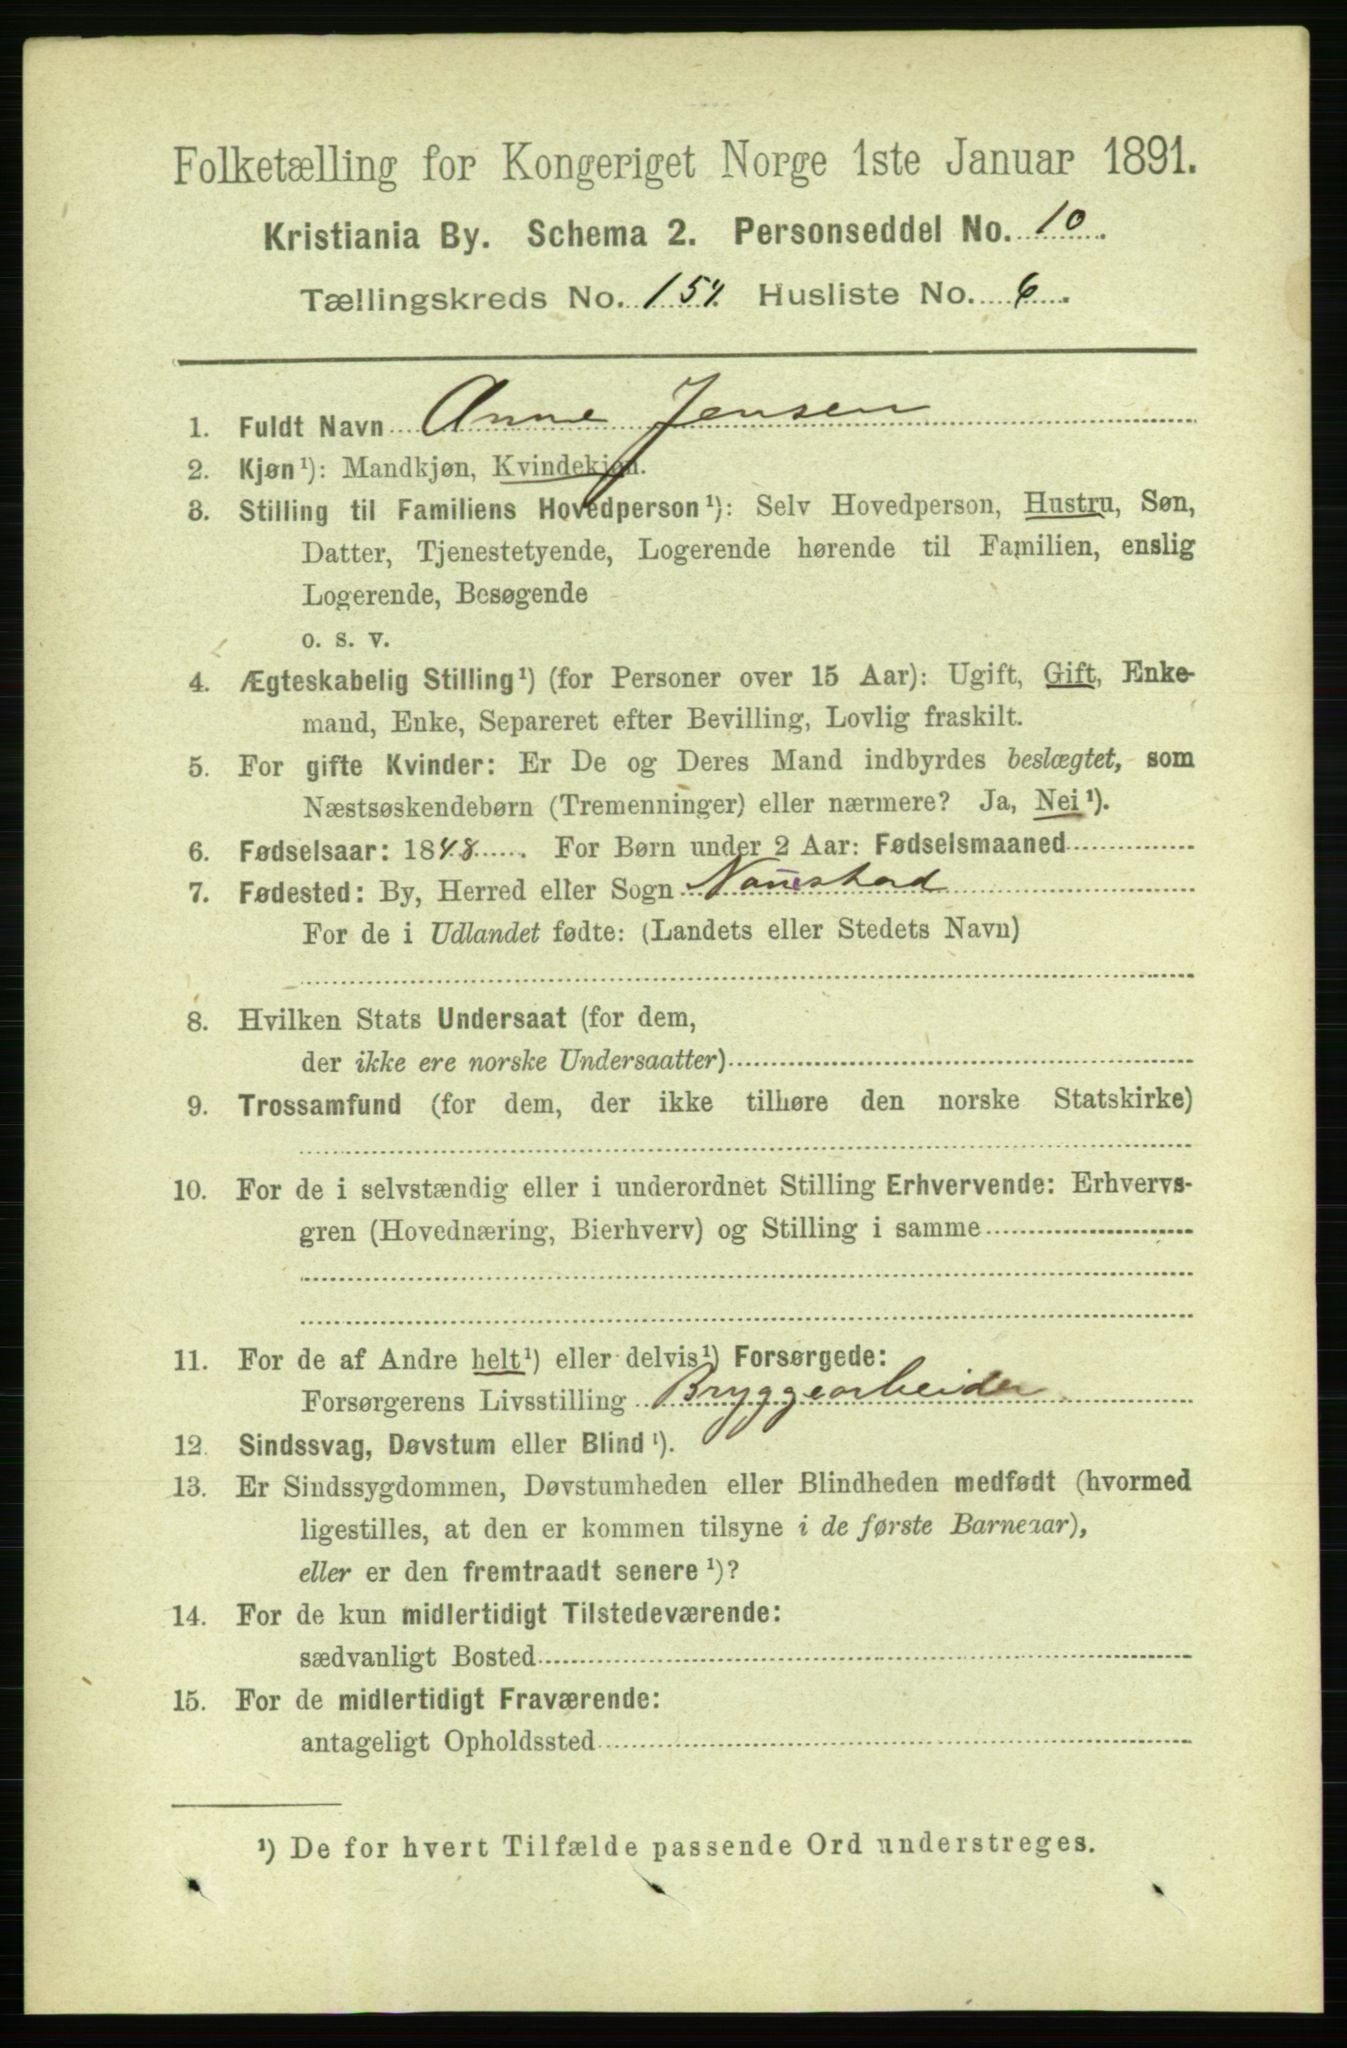 Folketælling for Kongeriget Norge 1ste Januar 1891.
Kristiania By. Schema 2. Personseddel No. 10.
Tællingskreds No. 154. Husliste No. 6.
1. Fuldt Navn Anne Jensen
2. Kjøn¹): Mandkjøn, Kvindekjøn.
3. Stilling til Familiens Hovedperson¹): Selv Hovedperson, Hustru, Søn,
Datter, Tjenestetyende, Logerende hørende til Familien, enslig
Logerende, Besøgende
o. s. v.
4. Ægteskabelig Stilling¹) (for Personer over 15 Aar): Ugift, Gift, Enke-
mand, Enke, Separeret efter Bevilling, Lovlig fraskilt.
5. For gifte Kvinder: Er De og Deres Mand indbyrdes beslægtet, som
Næstsøskendebørn (Tremenninger) eller nærmere? Ja, Nei¹).
6. Fødselsaar: 1848. For Børn under 2 Aar: Fødselsmaaned
7. Fødested: By, Herred eller Sogn Nannestad
For de i Udlandet fødte: (Landets eller Stedets Navn)
8. Hvilken Stats Undersaat (for dem,
der ikke ere norske Undersaatter)
9. Trossamfund (for dem, der ikke tilhøre den norske Statskirke)
10. For de i selvstændig eller i underordnet Stilling Erhvervende: Erhvervs-
gren (Hovednæring, Bierhverv) og Stilling i samme
11. For de af Andre helt¹) eller delvis¹) Forsørgede:
Forsørgerens Livsstilling Bryggearbeider
12. Sindssvag, Døvstum eller Blind¹).
13. Er Sindssygdommen, Døvstumheden eller Blindheden medfødt (hvormed
ligestilles, at den er kommen tilsyne i de første Barneaar),
eller er den fremtraadt senere¹)?
14. For de kun midlertidigt Tilstedeværende:
sædvanligt Bosted
15. For de midlertidigt Fraværende:
antageligt Opholdssted
¹) De for hvert Tilfælde passende Ord understreges.